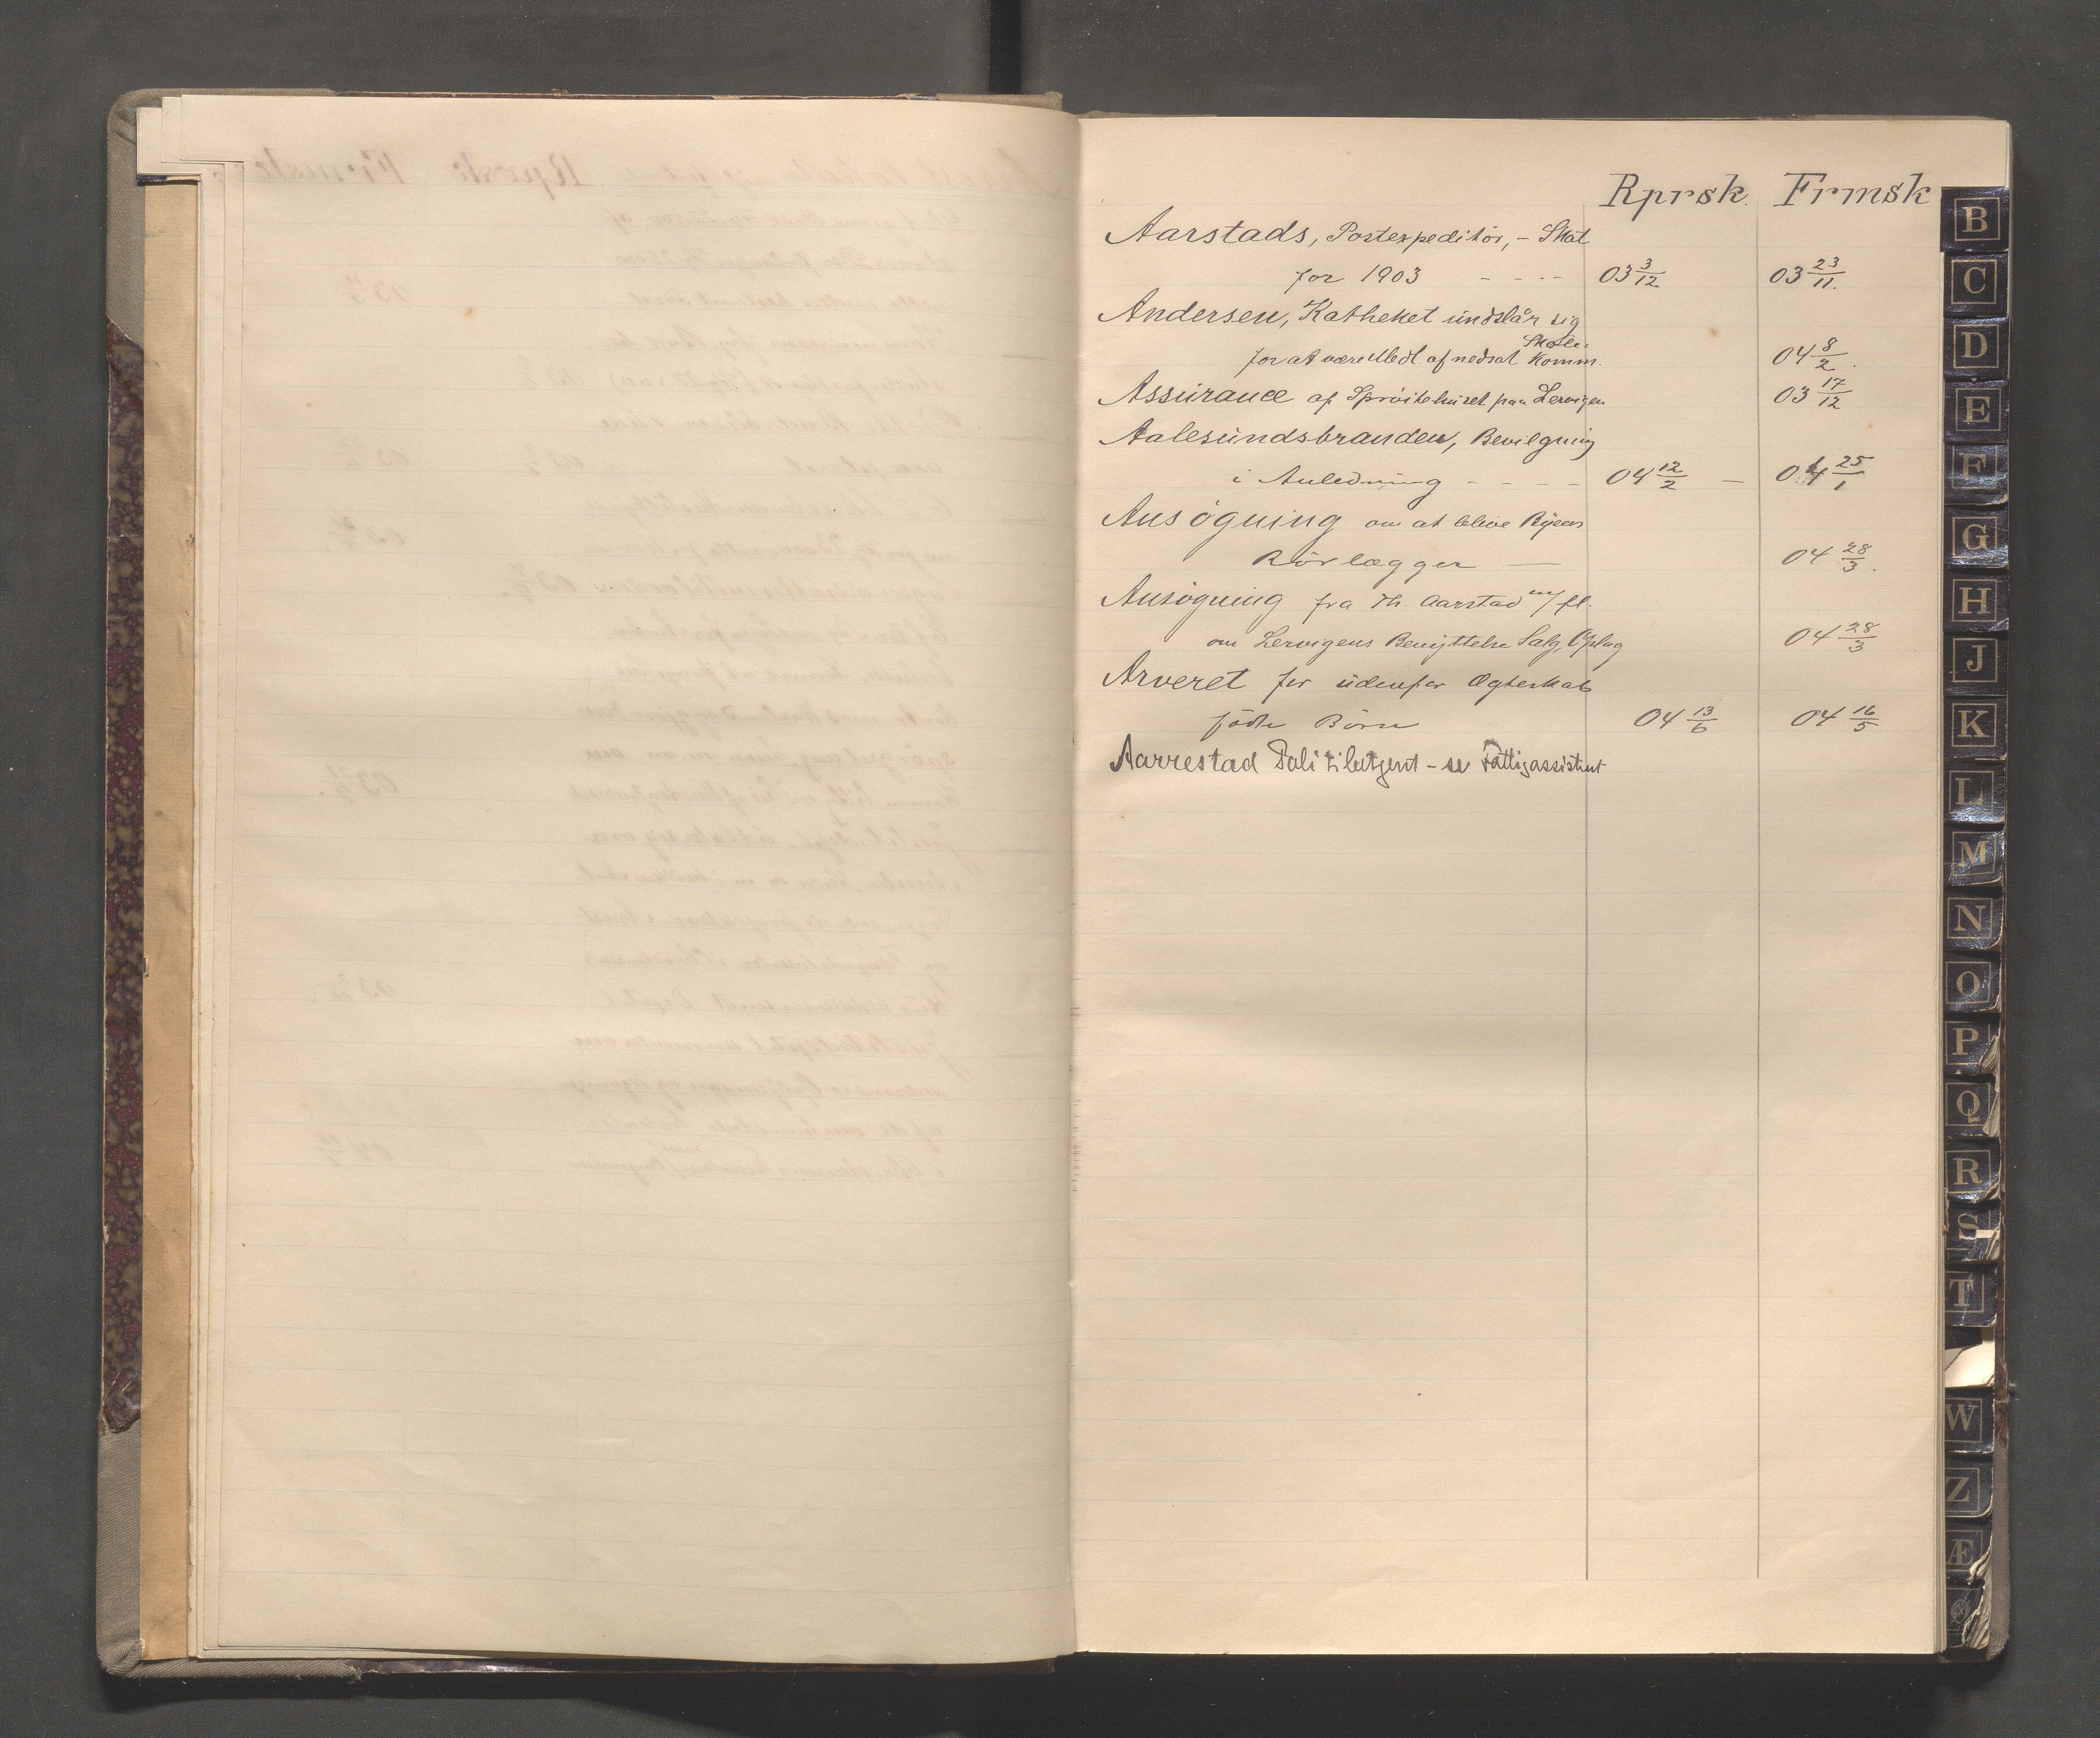 Rprsk. Frmsk
Aarstads, Postexpeditör, - Skat
for 1903 - - - - 03 3/12 03 23/11.
Andersen, Katheket undslår sig
for at være Medl. af nedsat Skole-Komm. 04 8/2.
Assurance af Spröitehuset paa Lervigen 03 17/12
Aalesundsbranden, Bevilgning
i Anledning - - - - 04 12/2 — 04 25/1
Ansögning om at blive Byens
Rörlægger — 04 28/3.
Ansögning fra Th. Aarstad m/fl.
om Lervigens Benyttelse Salg, Oplag 04 28/3
Arveret for udenfor Ægteskab
födte Börn 04 13/6 04 16/5
Aarrestad Politibetjent - se Fattigassistent
B
C
D
E
F
G
H
J
K
L
M
N
O
P
Q
R
S
T
W
Z
Æ
Ø